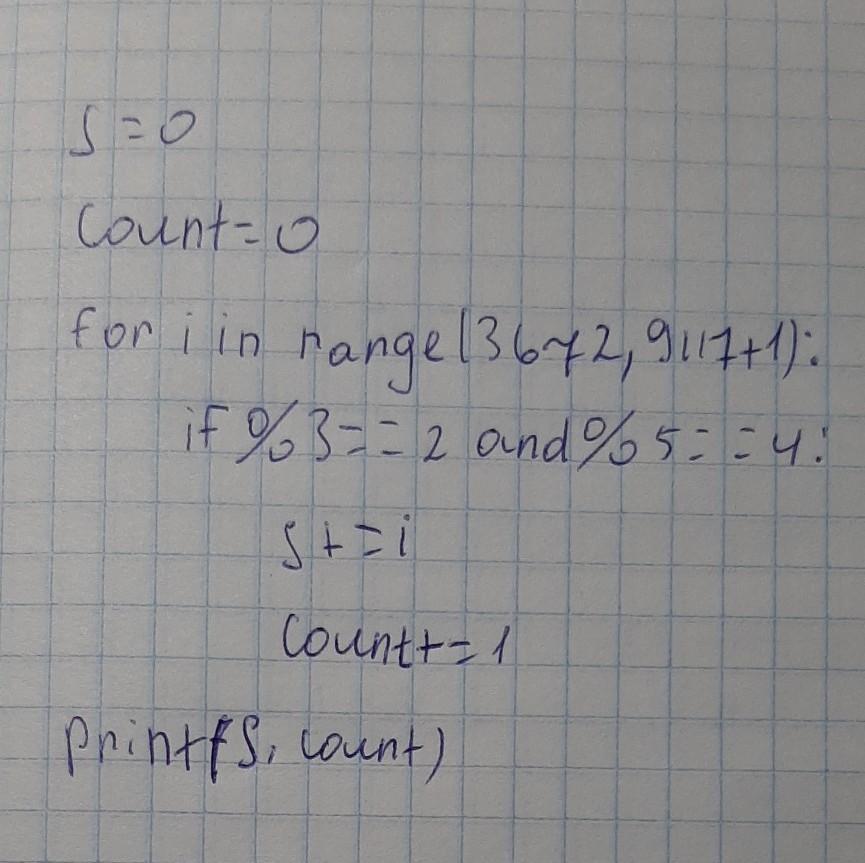 s=0
count=0
for i in range(3672,9117+1):
if %3==2 and %5==4:
s+=i
count+=1
print(s, count)